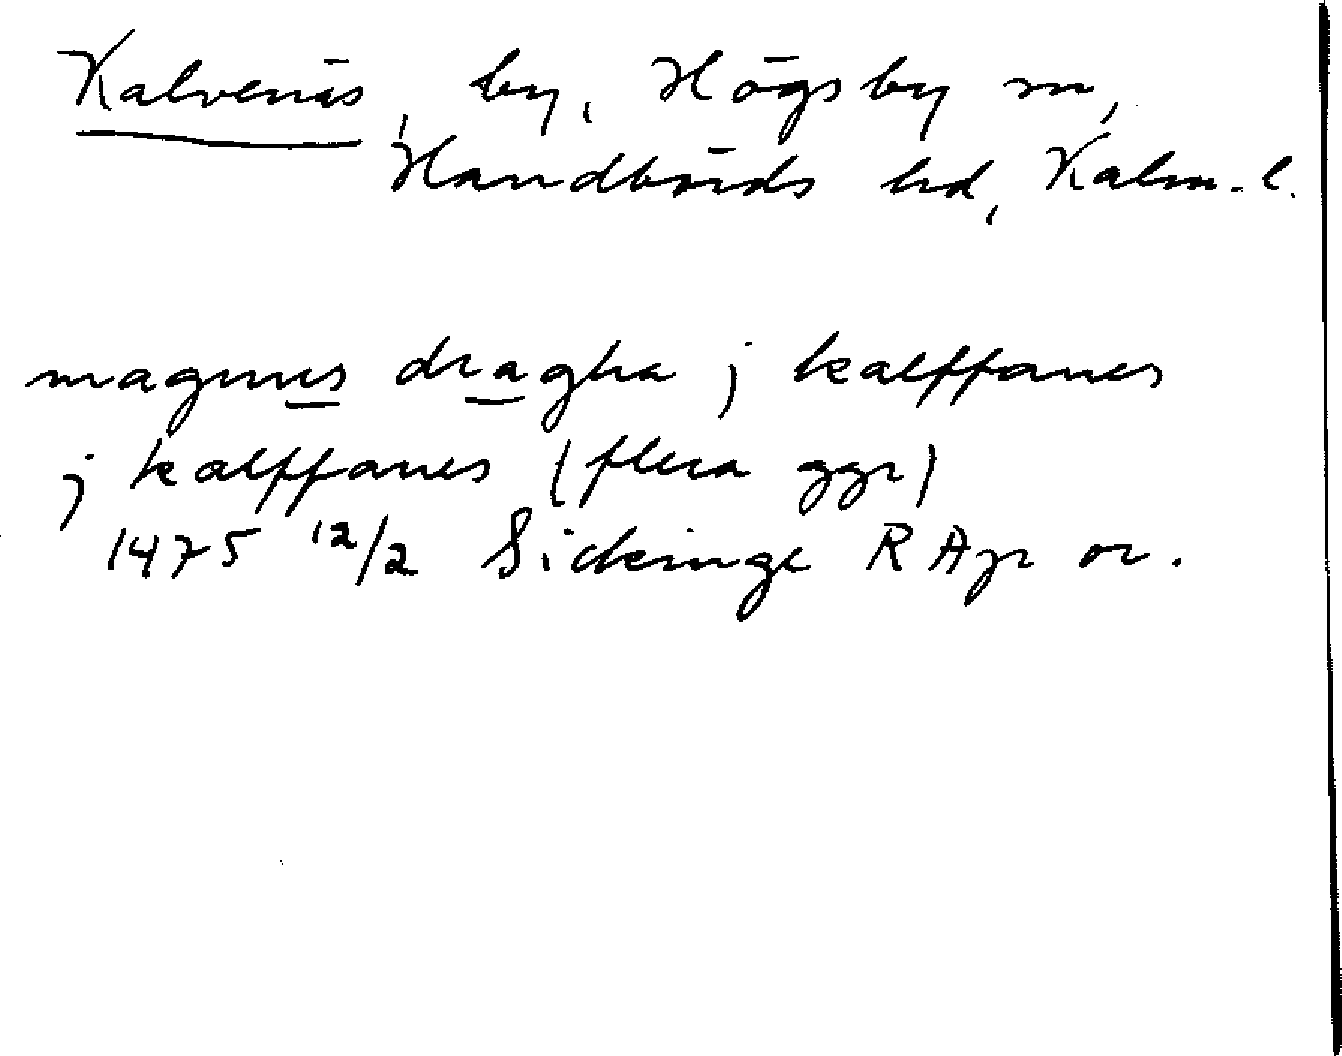 Kalvenäs, by, Högsby sn,
Handbörds hd, Kalm. l.
magnus dragha j kalffanes
j kalffanes (flera ggr)
1475 12/2 Sickinge RAp or.